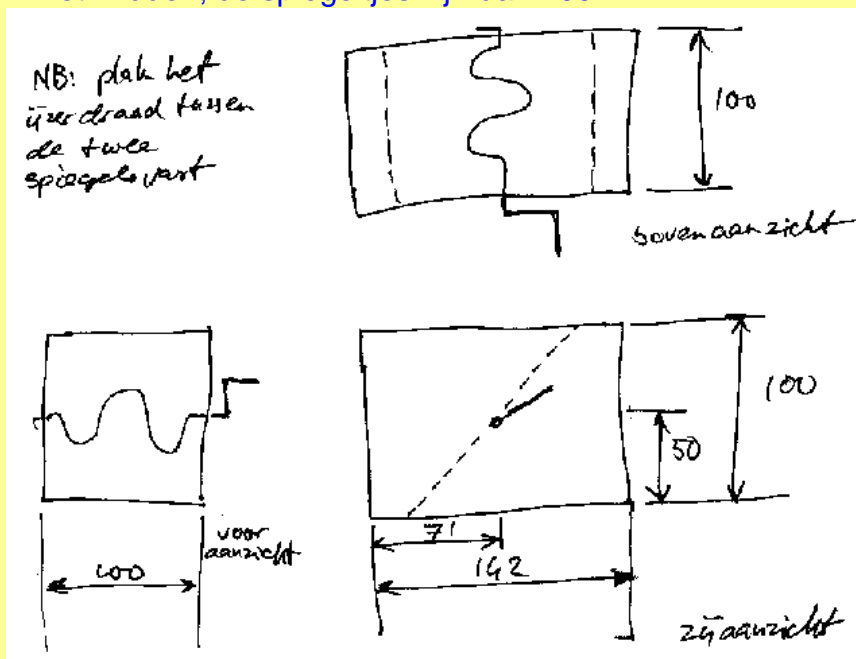 NB: plak het
ijzerdraad tussen
de twee
spiegels vast
100
bovenaanzicht
100
50
voor
aanzicht
71
100
142
zijaanzicht